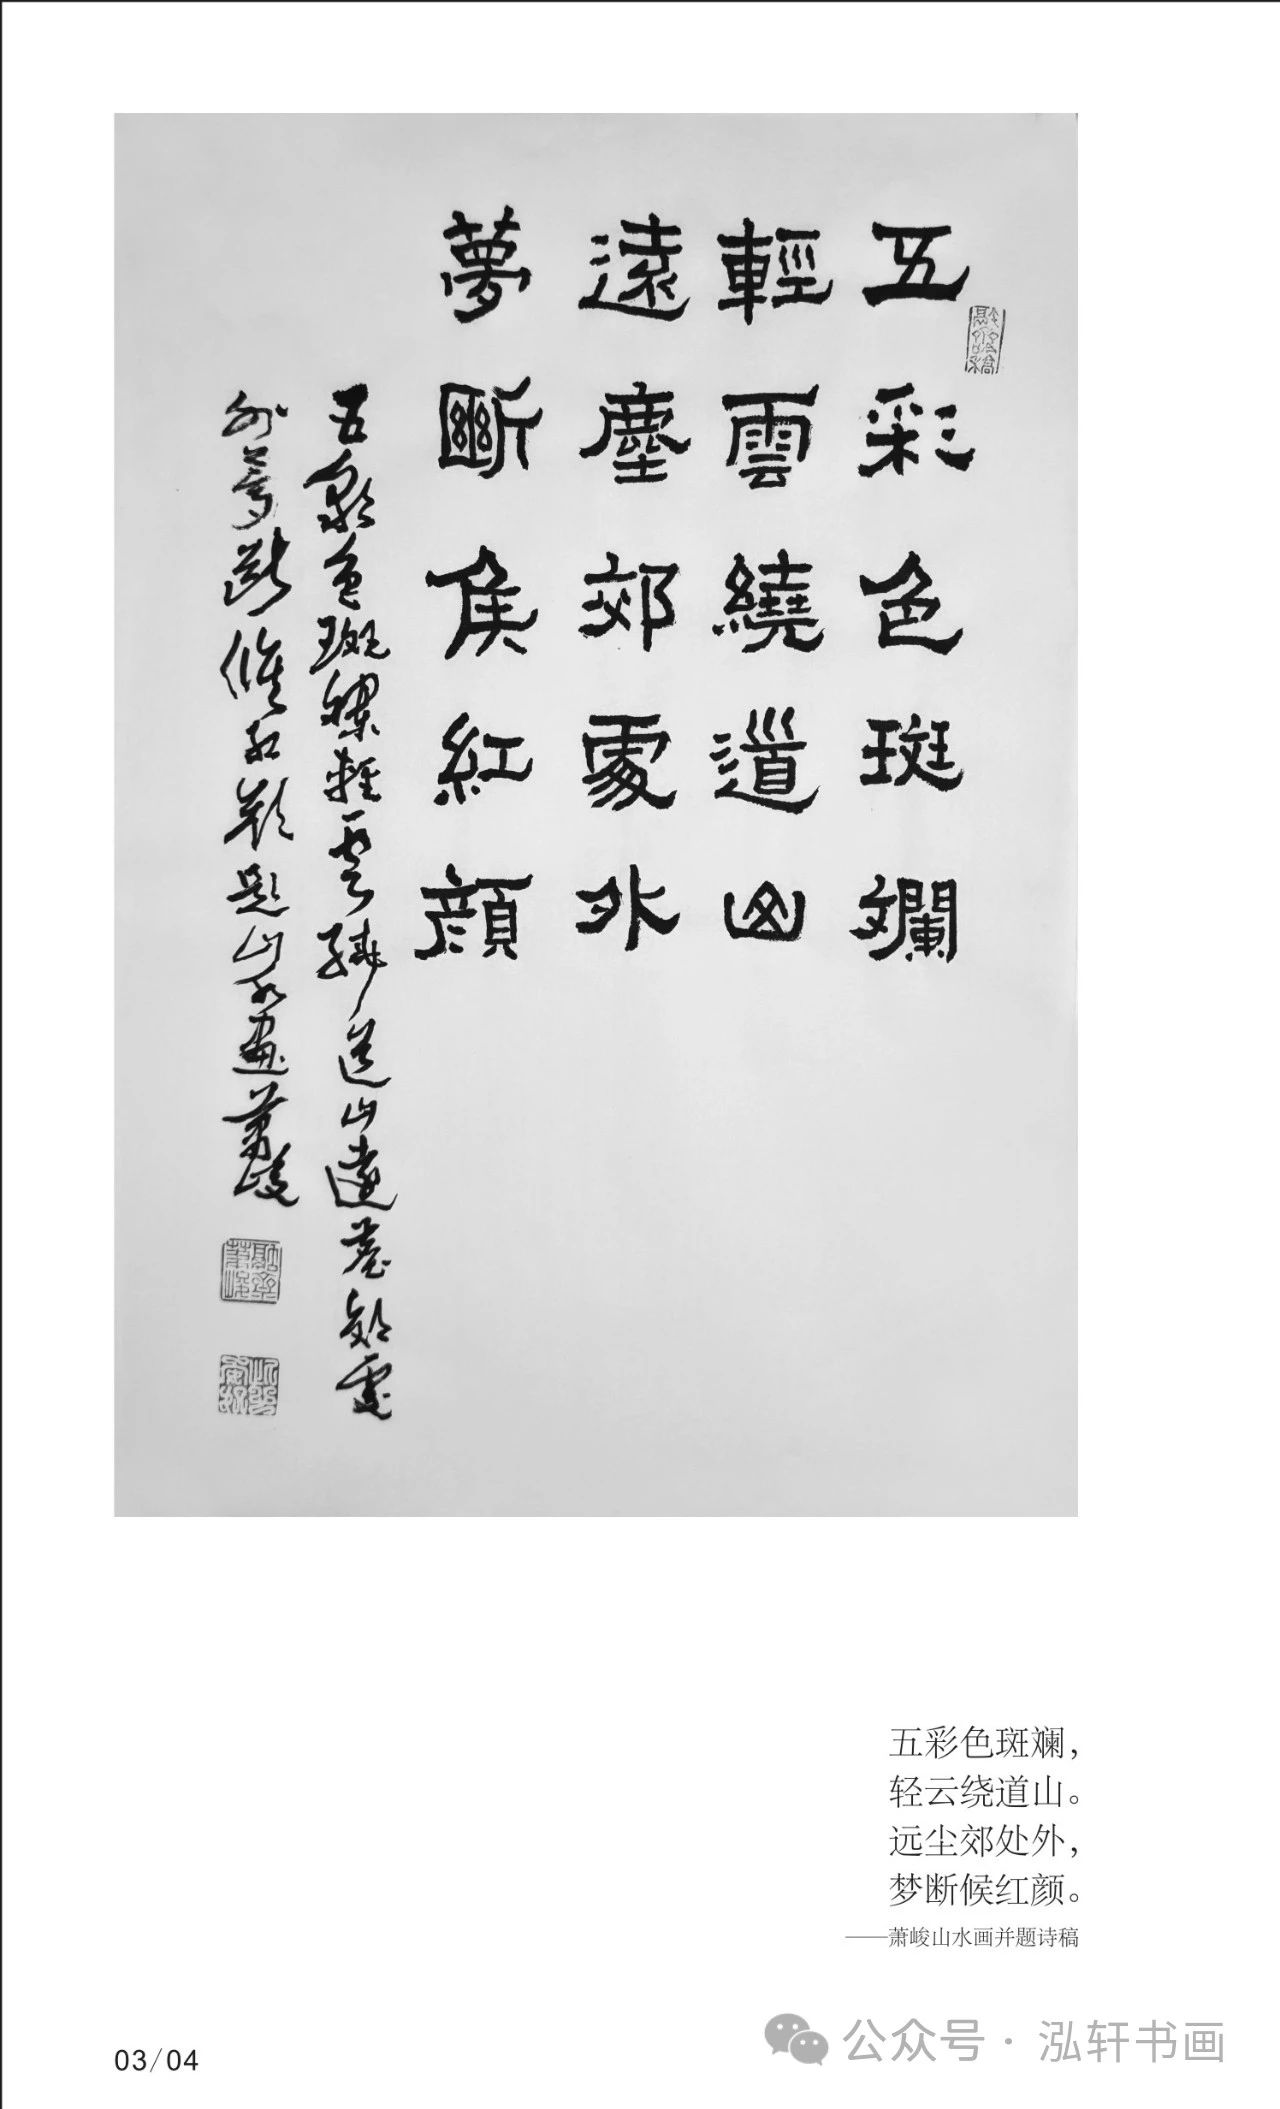 五彩色斑斕
輕雲繞道山
遠塵郊處外
夢斷矦紅顔
五彩色斑斕輕雲繞道山遠塵郊處
外夢斷候紅顔題山水畫蕭峻
五彩色斑斓，
轻云绕道山。
远尘郊处外，
梦断候红颜。
——萧峻山水画并题诗稿
03/04
公众号·泓轩书画